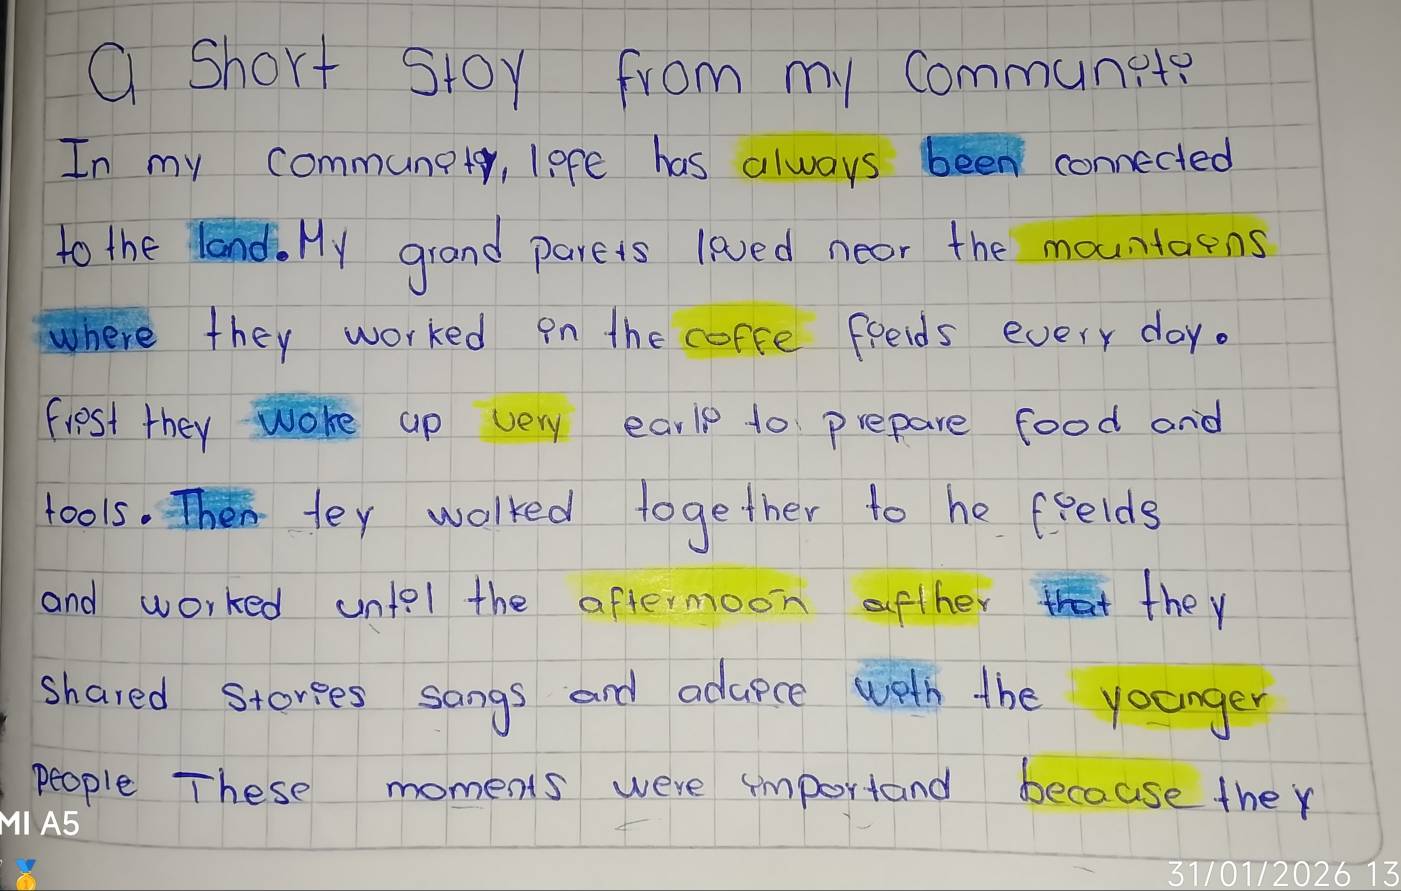 a Short Stoy from my Communiti
In my community, life has always been connected
to the land. My grand parets lived near the mountains
where they worked in the coffe fieids every day.
first they woke up very earli to prepare food and
tools. Then tey walked together to he fields
and worked until the aftermoon afther that they
shared stories sangs and advice with the younger
people These moments were importand because they
MI A5
31/01/2026 13